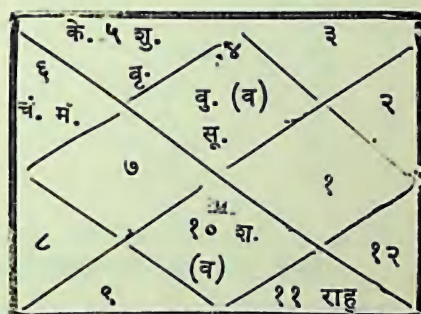 के. ५ शु.
वृ.
४
३
६
चं. मं.
वु. (व)
सू.
२
७
१
८
१० श.
(व)
१२
९
११ राहु